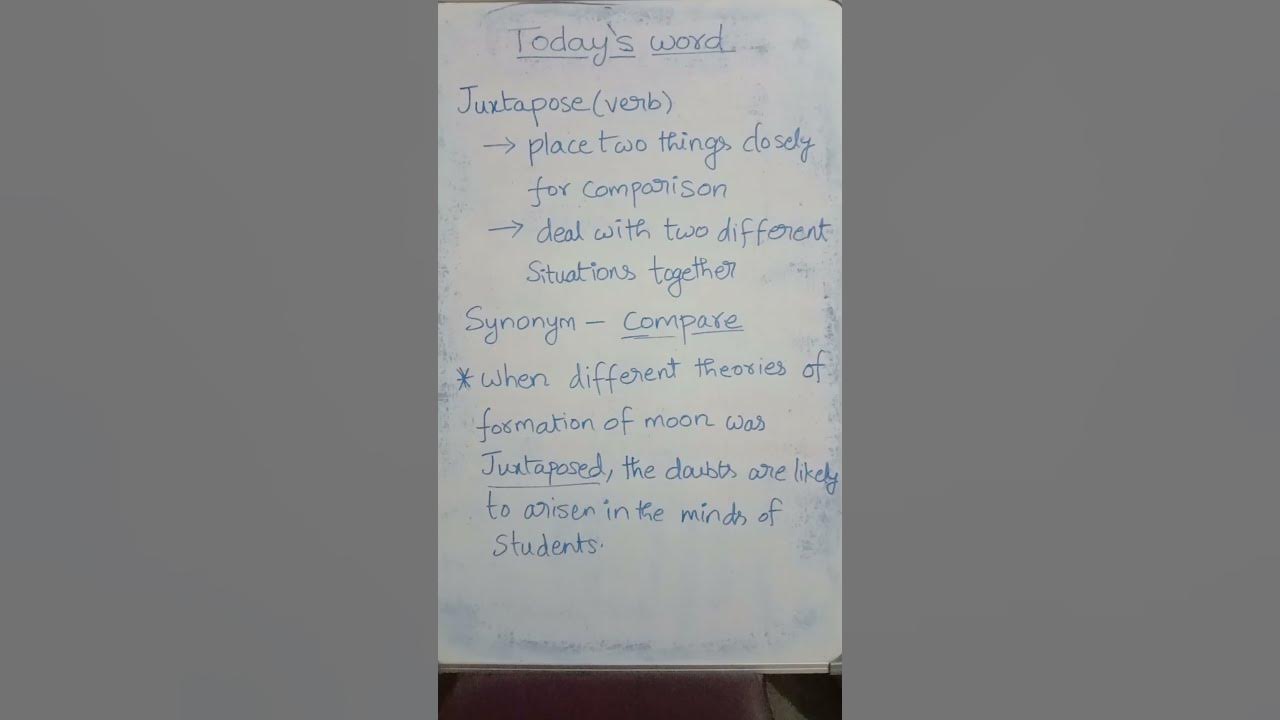 Today's word
Juxtapose (verb)
→ place two things closely
for comparison
→ deal with two different
Situations together
Synonym – Compare
* when different theories of
formation of moon was
Juxtaposed, the doubts are likely
to arisen in the minds of
Students.